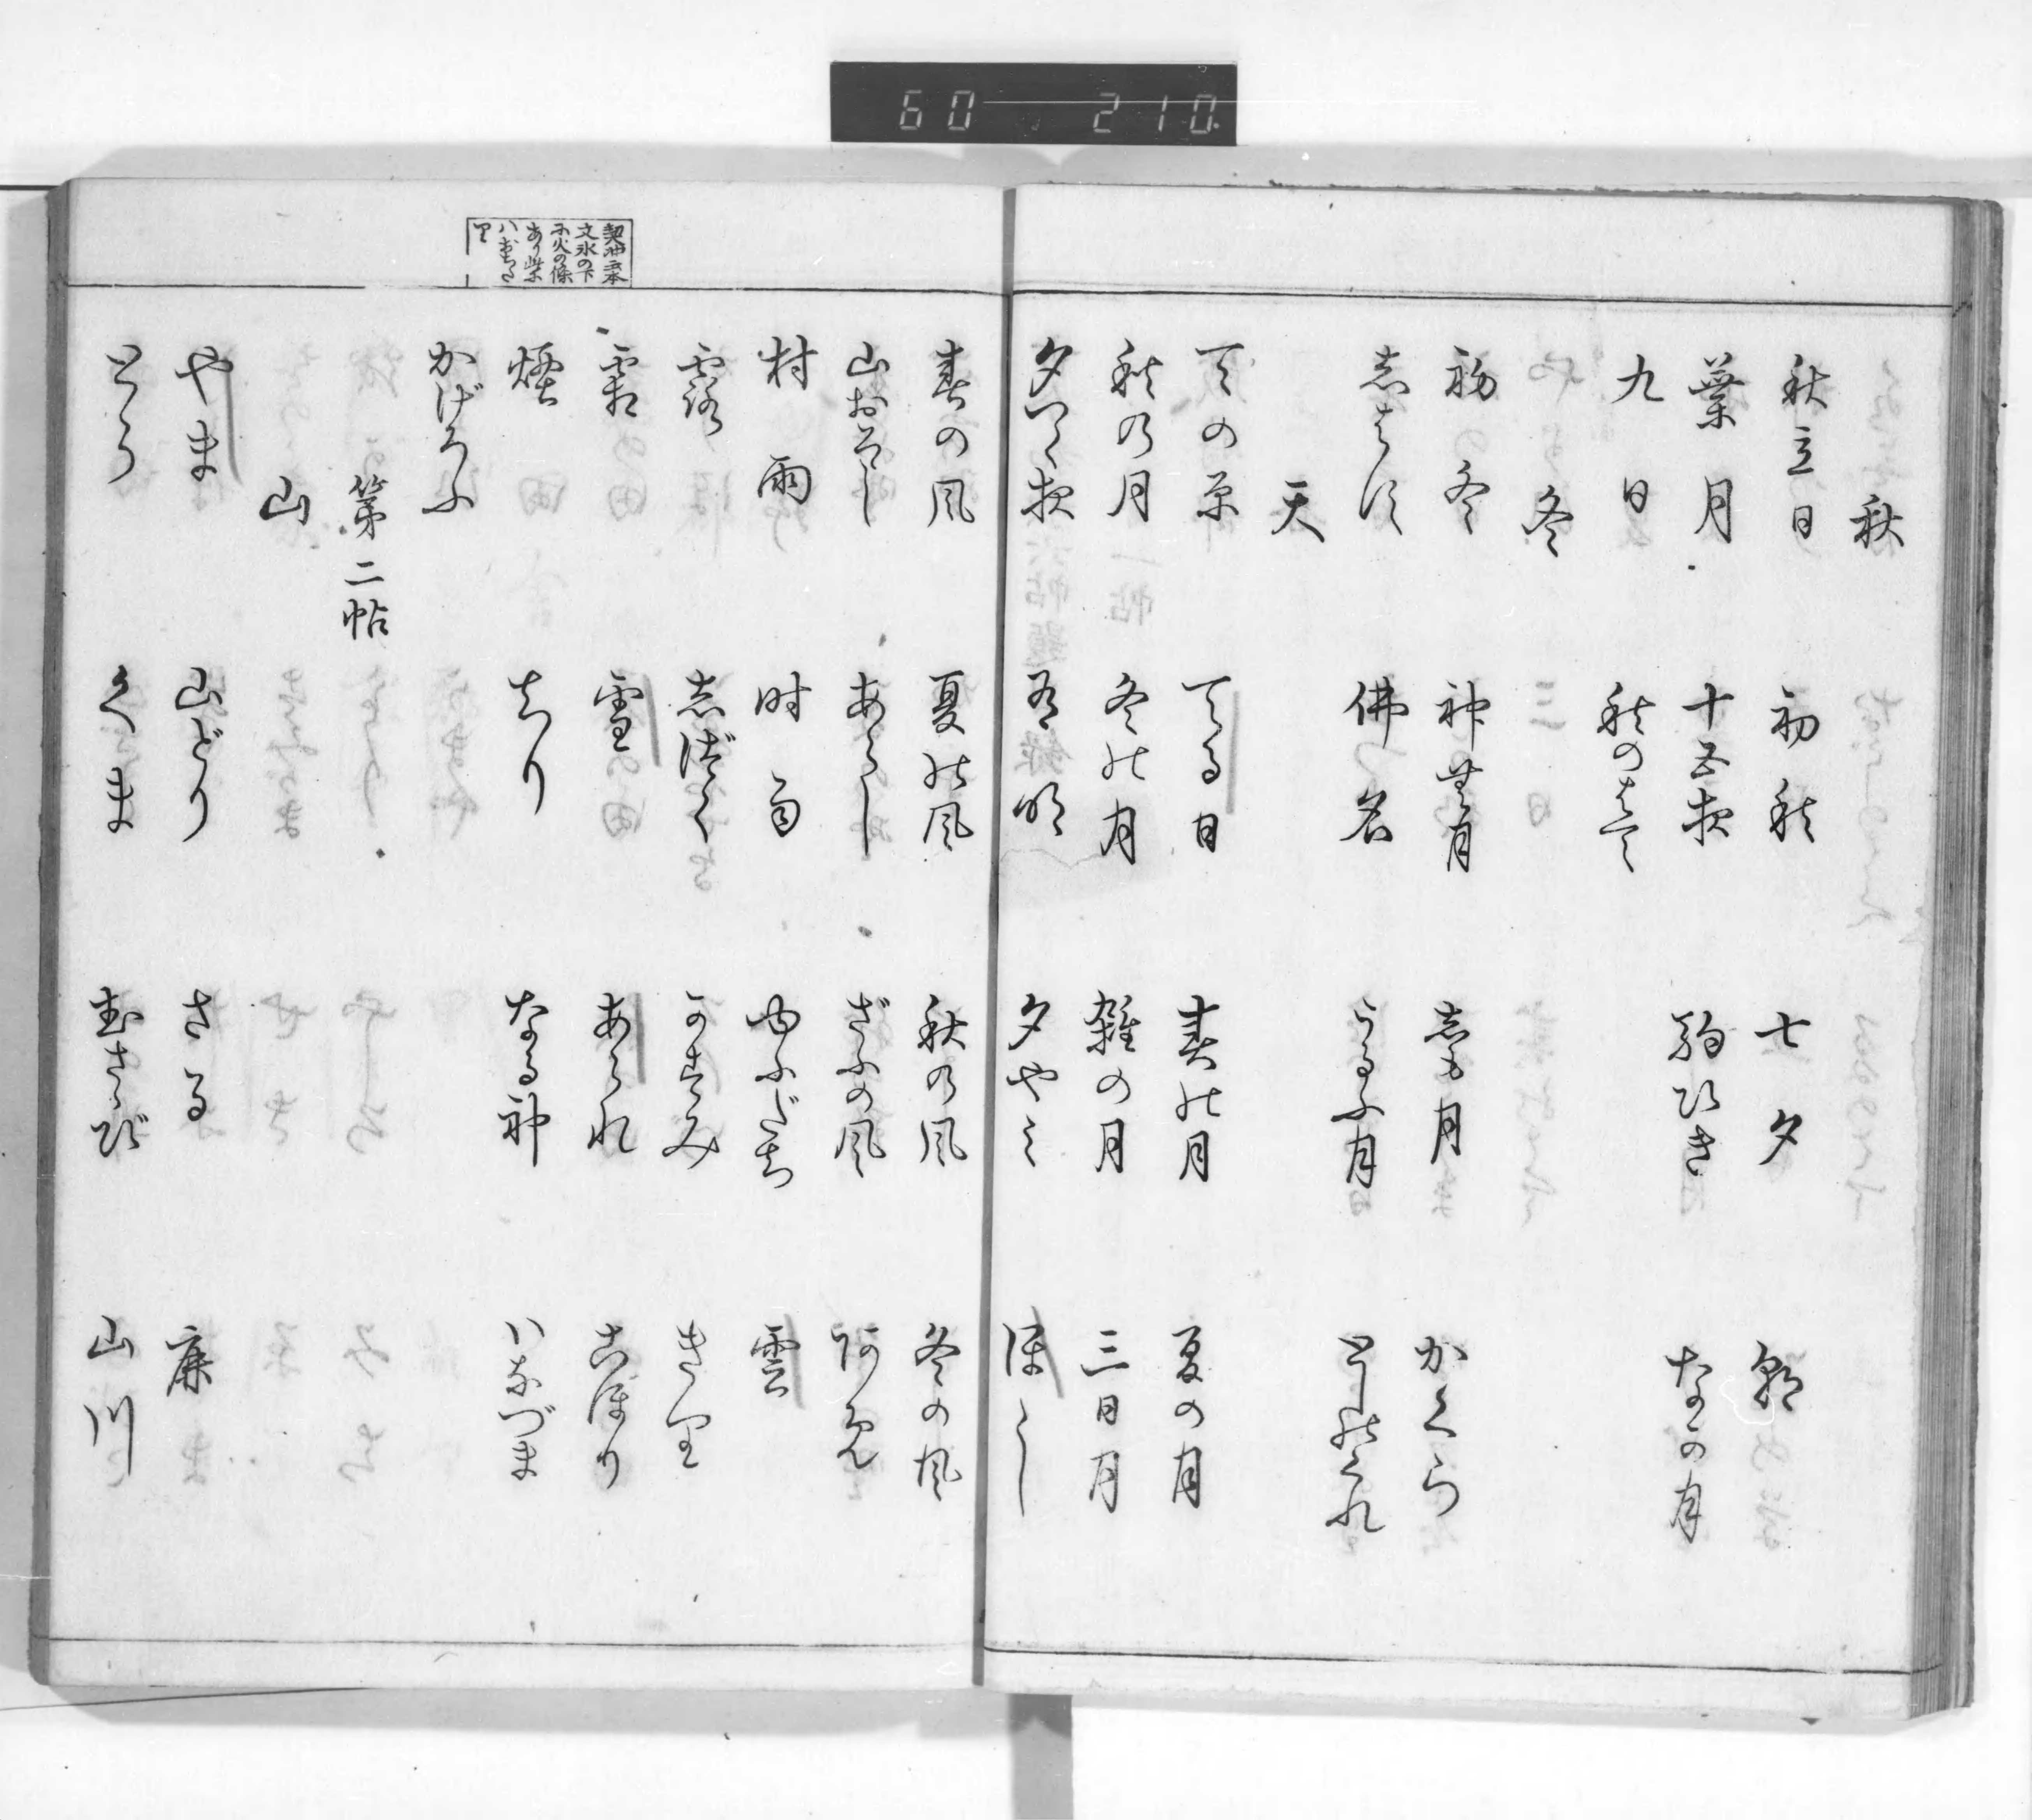 秋
秋立日 初秋 七夕 朝
葉月 十五夜 駒ひき なかの月
九日 秋のはて
冬
初冬 神無月 志も月 かくら
志はす 佛名 うるふ月 としのくれ
天
天の原 てる日 春の月 夏の月
秋の月 冬の月 雑の月 三日月
夕つく夜 有明 夕やミ ほし
契沖云本
文氷の下
に火の條
あり此に
ハおちた
り
春の風 夏の風 秋の風 冬の風
山おろし あらし ざふの風 阿免
村雨 时雨 ゆふだち 雲
露 志づく かすみ きり
霜 雪 あられ こほり
煙 ちり なる神 いなづま
かげろふ
第二帖
山
やま 山どり さる 鹿
とら くま むさゝび 山川